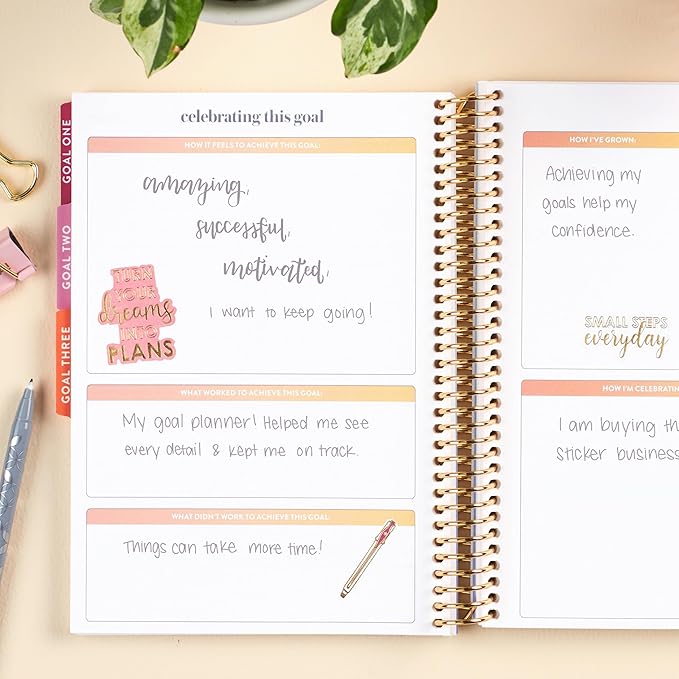 GOAL ONE
GOAL TWO
GOAL THREE
celebrating this goal
HOW IT FEELS TO ACHIEVE THIS GOAL:
amazing,
successful,
motivated,
I want to keep going!
TURN
YOUR
dreams
INTO
PLANS
WHAT WORKED TO ACHIEVE THIS GOAL:
My goal planner! Helped me see
every detail & kept me on track.
WHAT DIDN'T WORK TO ACHIEVE THIS GOAL:
Things can take more time!
HOW I'VE GROWN:
Achieving my
goals help my
confidence.
SMALL STEPS
everyday
HOW I'M CELEBRATIN
I am buying th
sticker business